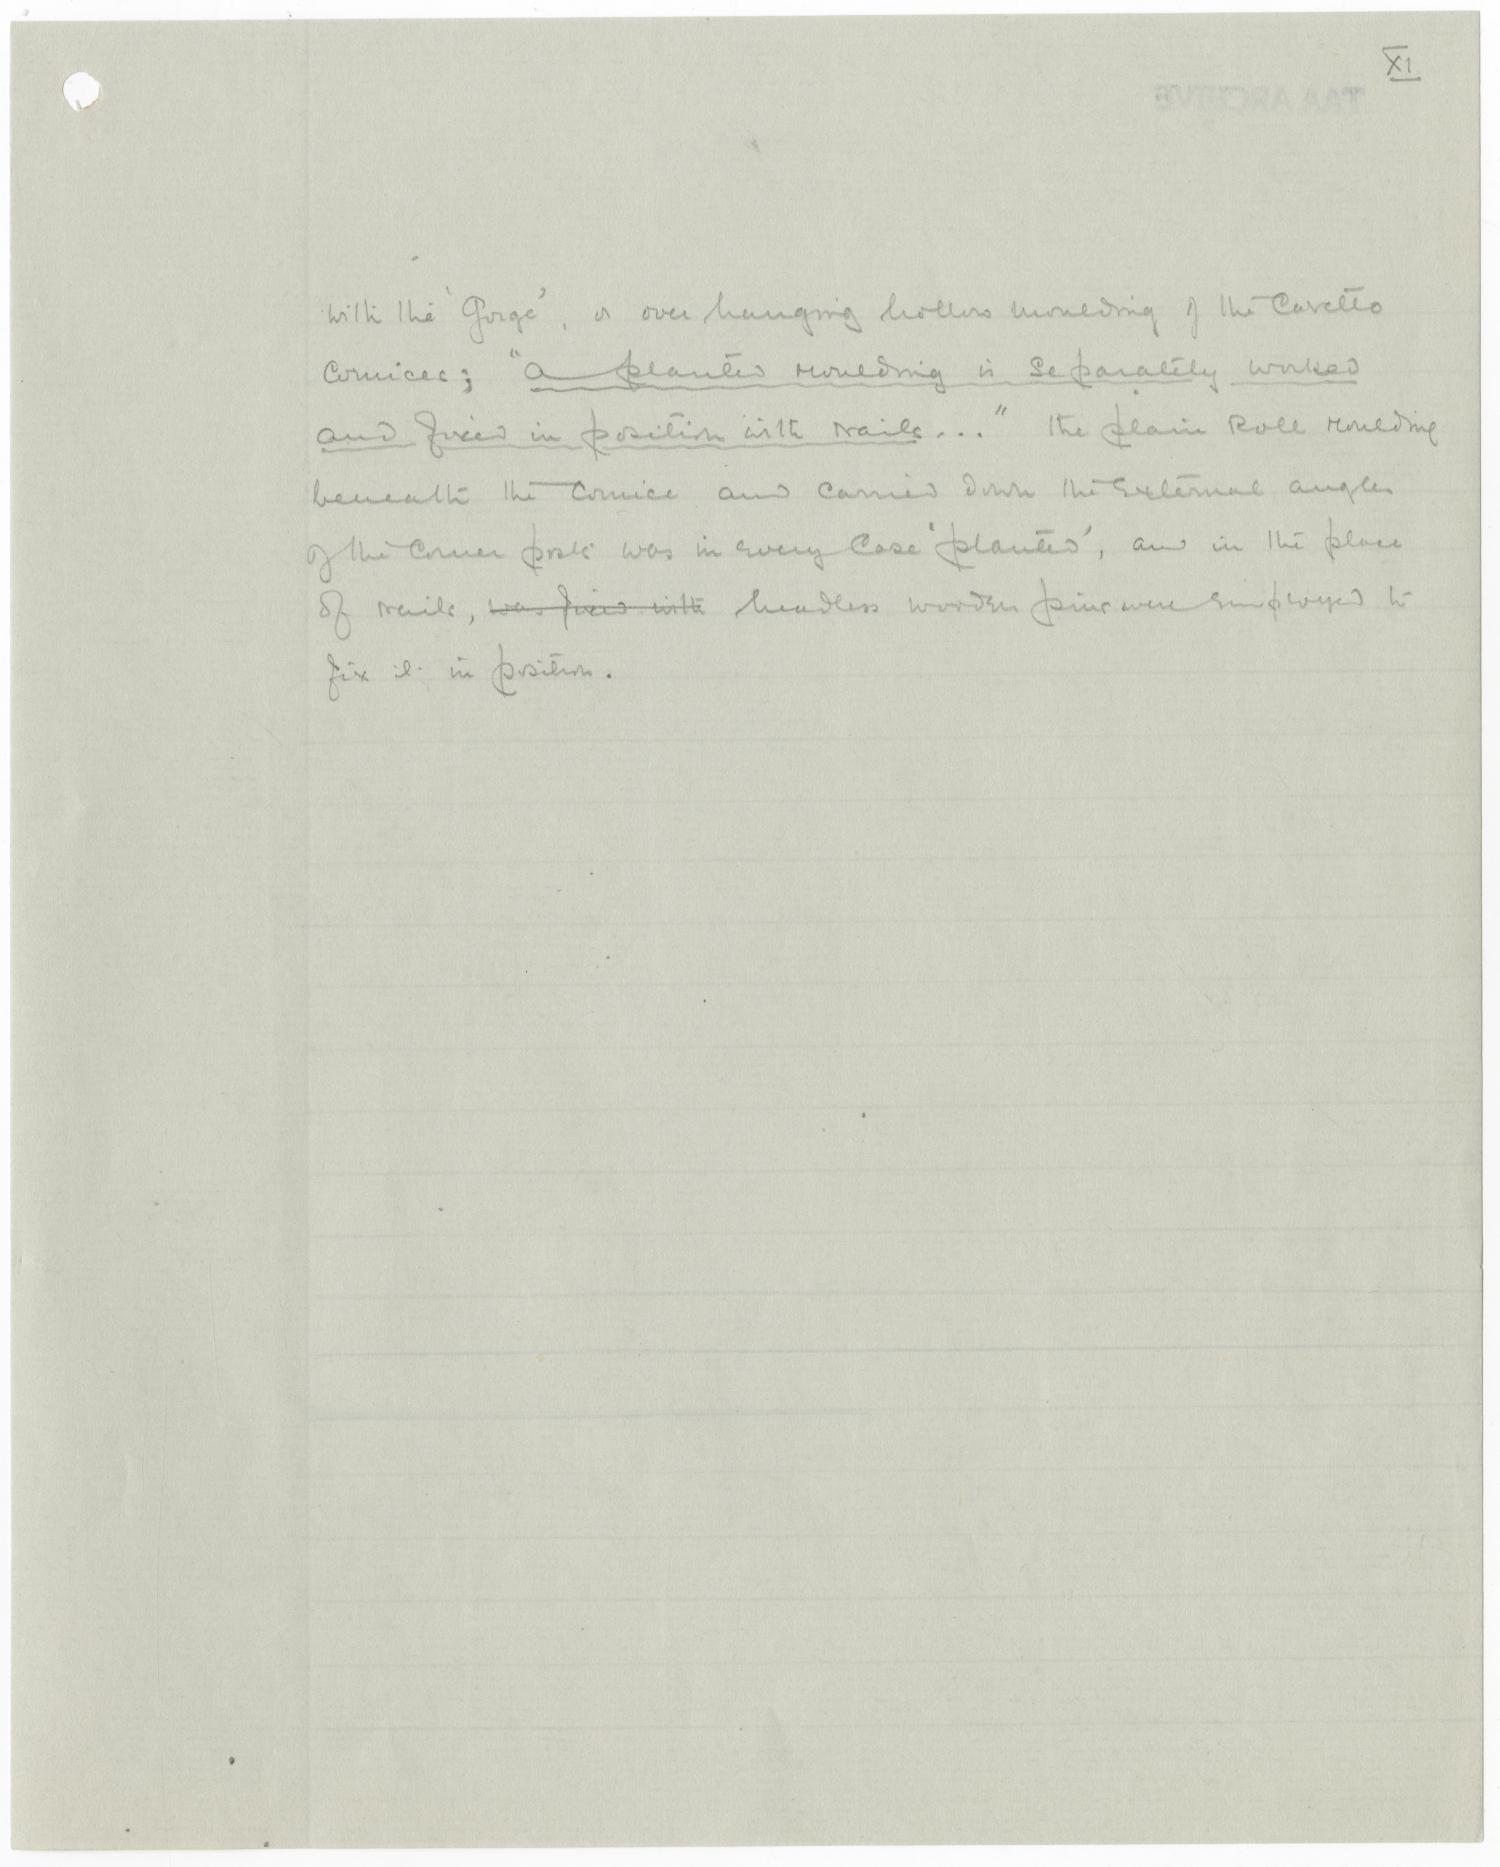 XI
TAA ARCHIVE
with the 'Gorge', or over hanging hollow moulding of the Cavetto
Cornices; "a planted moulding is separately worked
and fixed in position with nails..." The plain Roll moulding
beneath the Cornice and carried down the External angles
of the Corner posts was in every case 'planted', and in the place
of nails, was fixed with headless wooden pins were employed to
fix it in position.